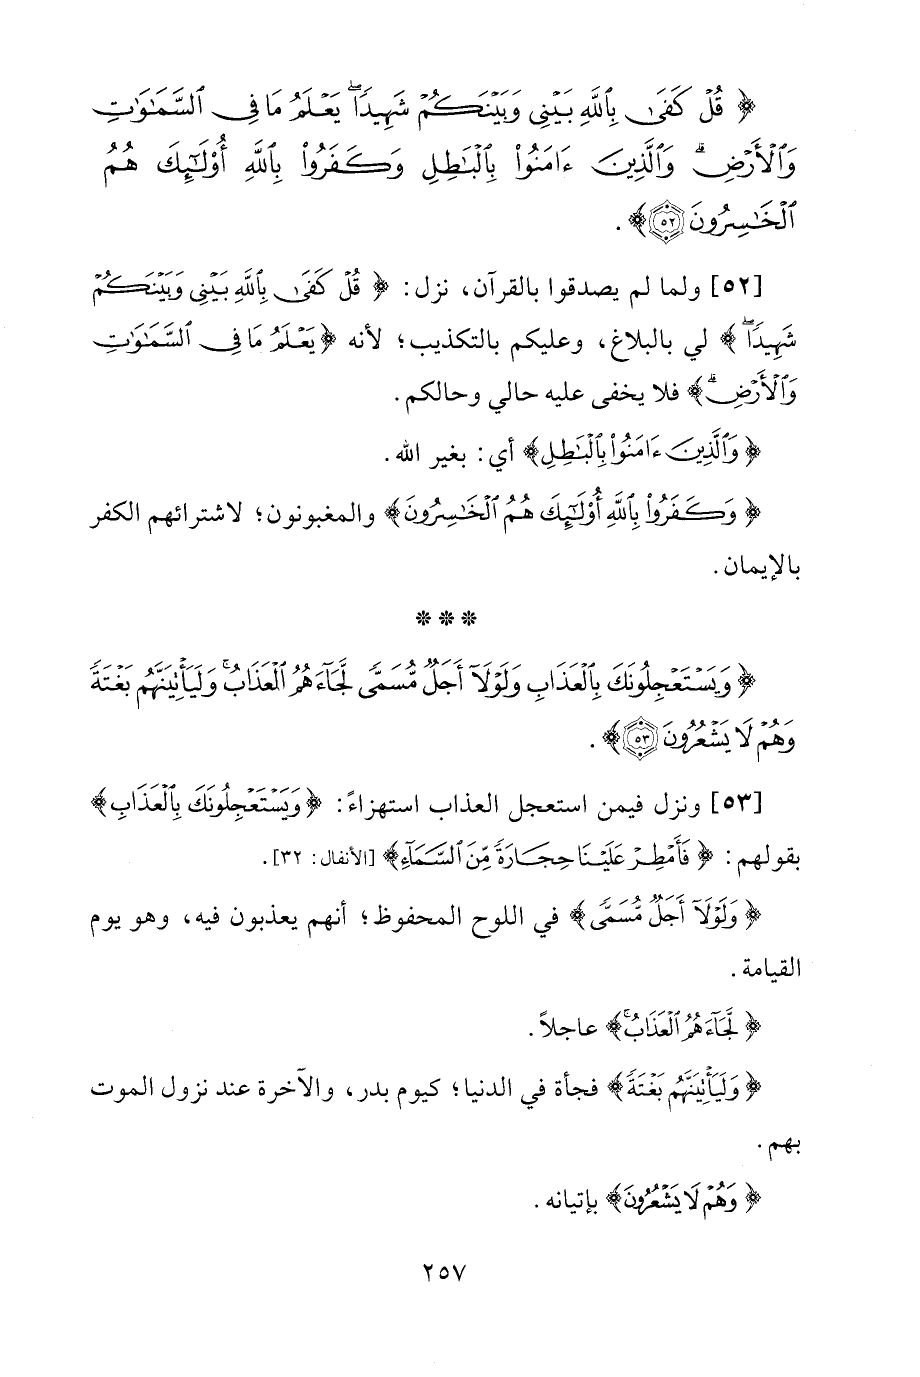 ﴿ قُلْ كَفَىٰ بِٱللَّهِ بَيْنِى وَبَيْنَكُمْ شَهِيدًا ۖ يَعْلَمُ مَا فِى ٱلسَّمَـٰوَٰتِ
وَٱلْأَرْضِ ۗ وَٱلَّذِينَ ءَامَنُوا۟ بِٱلْبَـٰطِلِ وَكَفَرُوا۟ بِٱللَّهِ أُو۟لَـٰٓئِكَ هُمُ
ٱلْخَـٰسِرُونَ ٥٢ ﴾ .
[٥٢] ولما لم يصدقوا بالقرآن، نزل: ﴿ قُلْ كَفَىٰ بِٱللَّهِ بَيْنِى وَبَيْنَكُمْ
شَهِيدًا ۖ ﴾ لي بالبلاغ، وعليكم بالتكذيب؛ لأنه ﴿يَعْلَمُ مَا فِى ٱلسَّمَـٰوَٰتِ
وَٱلْأَرْضِ ۗ﴾ فلا يخفى عليه حالي وحالكم.
﴿ وَٱلَّذِينَ ءَامَنُوا۟ بِٱلْبَـٰطِلِ﴾ أي: بغير الله.
﴿ وَكَفَرُوا۟ بِٱللَّهِ أُو۟لَـٰٓئِكَ هُمُ ٱلْخَـٰسِرُونَ﴾ والمغبونون؛ لاشترائهم الكفر
بالإيمان.
* * *
﴿ وَيَسْتَعْجِلُونَكَ بِٱلْعَذَابِ وَلَوْلَآ أَجَلٌ مُّسَمًّى لَّجَآءَهُمُ ٱلْعَذَابُ ۚ وَلَيَأْتِيَنَّهُم بَغْتَةً
وَهُمْ لَا يَشْعُرُونَ ٥٣ ﴾ .
[٥٣] ونزل فيمن استعجل العذاب استهزاءً: ﴿ وَيَسْتَعْجِلُونَكَ بِٱلْعَذَابِ﴾
بقولهم: ﴿ فَأَمْطِرْ عَلَيْنَا حِجَارَةً مِّنَ ٱلسَّمَآءِ﴾ [الأنفال: ٣٢].
﴿ وَلَوْلَآ أَجَلٌ مُّسَمًّى ﴾ في اللوح المحفوظ؛ أنهم يعذبون فيه، وهو يوم
القيامة.
﴿ لَّجَآءَهُمُ ٱلْعَذَابُ ۚ﴾ عاجلاً.
﴿ وَلَيَأْتِيَنَّهُم بَغْتَةً﴾ فجأة في الدنيا؛ كيوم بدر، والآخرة عند نزول الموت
بهم.
﴿ وَهُمْ لَا يَشْعُرُونَ﴾ بإتيانه.
٢٥٧